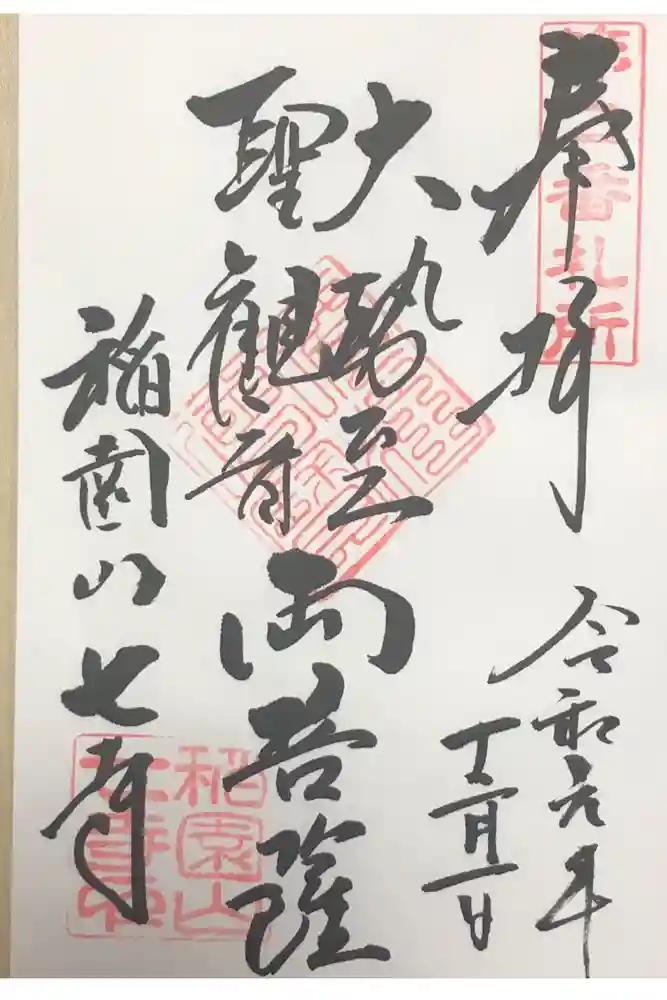 奉拝
令和元年
十二月一日
大勢至
聖観音
両菩薩
稲園山七寺
番札所
稲園山
七寺印